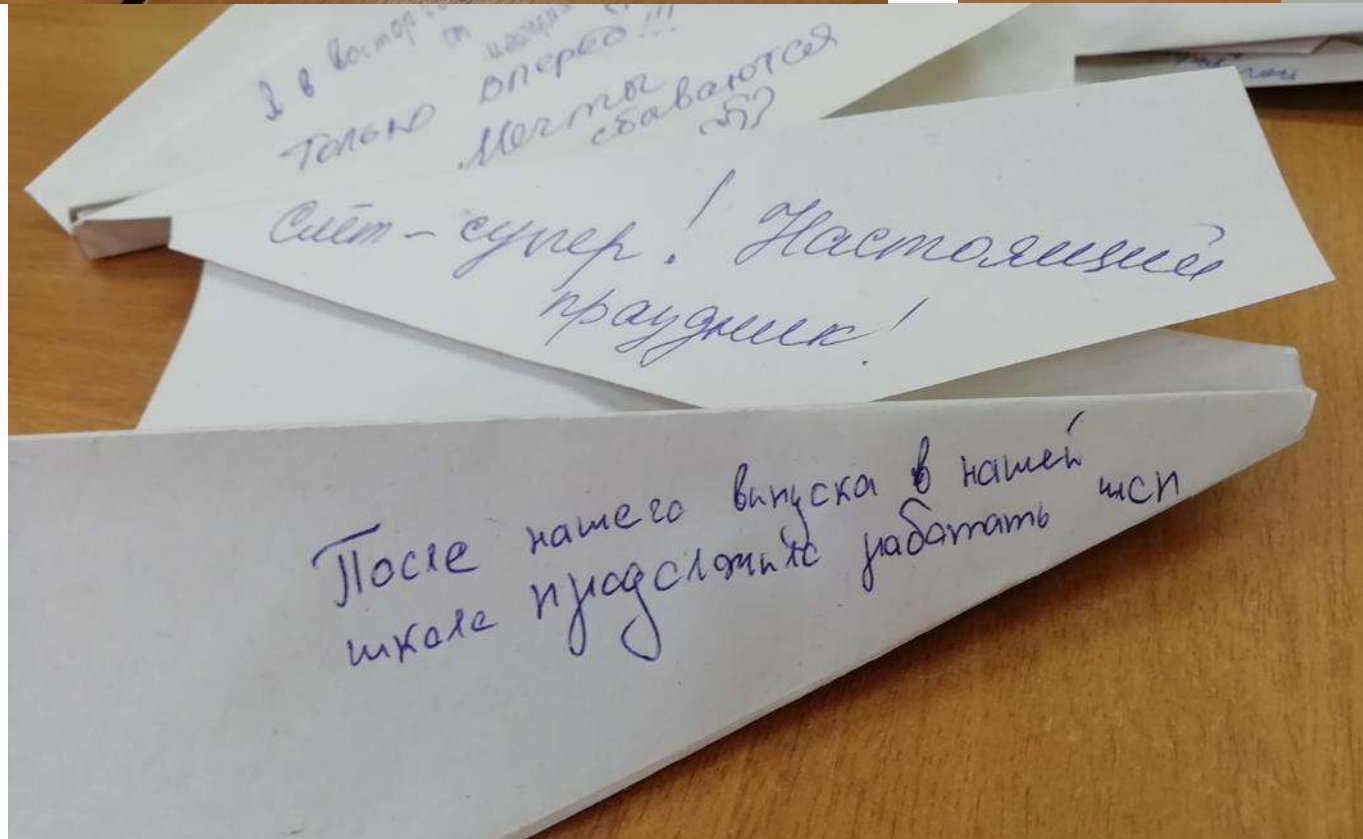 Я в восторге
от наших
Только вперёд!!!
Мечты
сбываются
Слёт - супер! Настоящий
праздник!
После нашего випуска в нашей
школе продолжит работать шсп